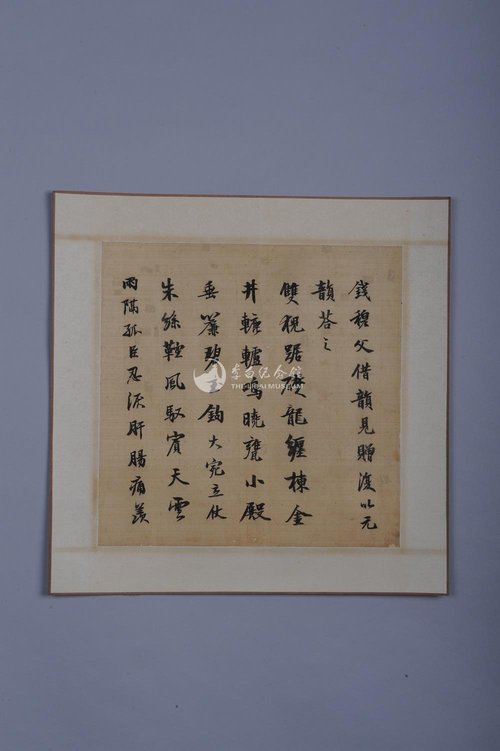 錢穆父借韻見贈復以元
韻荅之
雙猊踞礎龍纏棟金
井轆轤鳴曉甕小殿
垂簾碧玉鉤大宛立仗
朱絲鞚風馭賓天雲
雨隔孤臣忍淚肝腸痛羨
李白纪念馆
THE LIBAI MUSEUM